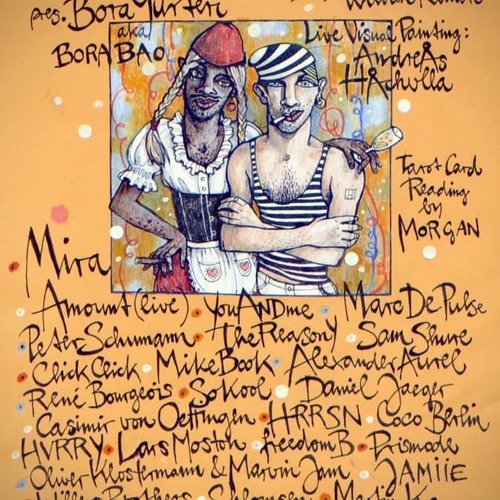 pres. Bora
aka
BORA BAO
Live Visual Painting:
AndreAs
Tarot Card
Reading
by
MORGAN
Mira
Amount (live) • YouANDme • Marc DePulse
Peter Schumann • TheReasonY • Sam Shure
ClickClick • MikeBook • Alexander Aurel
René Bourgeois • SoKool • Daniel Jaeger
Casimir von Oettingen • HRRSN • Coco Berlin
HVRRY • Lars Moston • freedomB • Prismode
Oliver Klostermann & Marvin Jam • JAMIIE